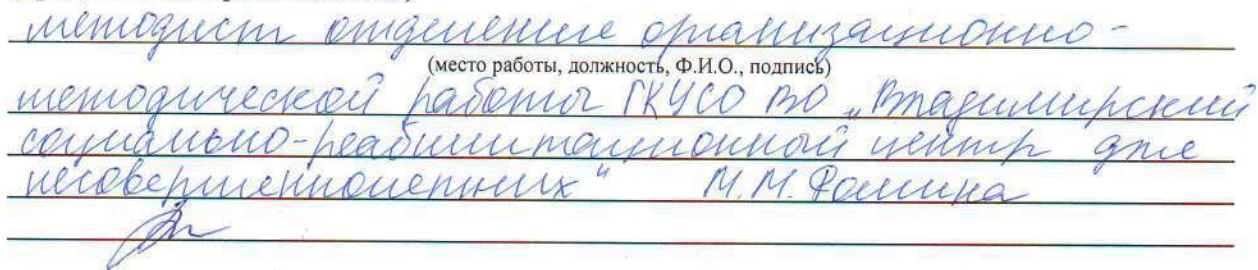 методист отделение организационно-
(место работы, должность, Ф.И.О., подпись)
методической работы ГКУСО ВО „Владимирский
социально-реабилитационный центр для
несовершеннолетних" М.М. Фомина